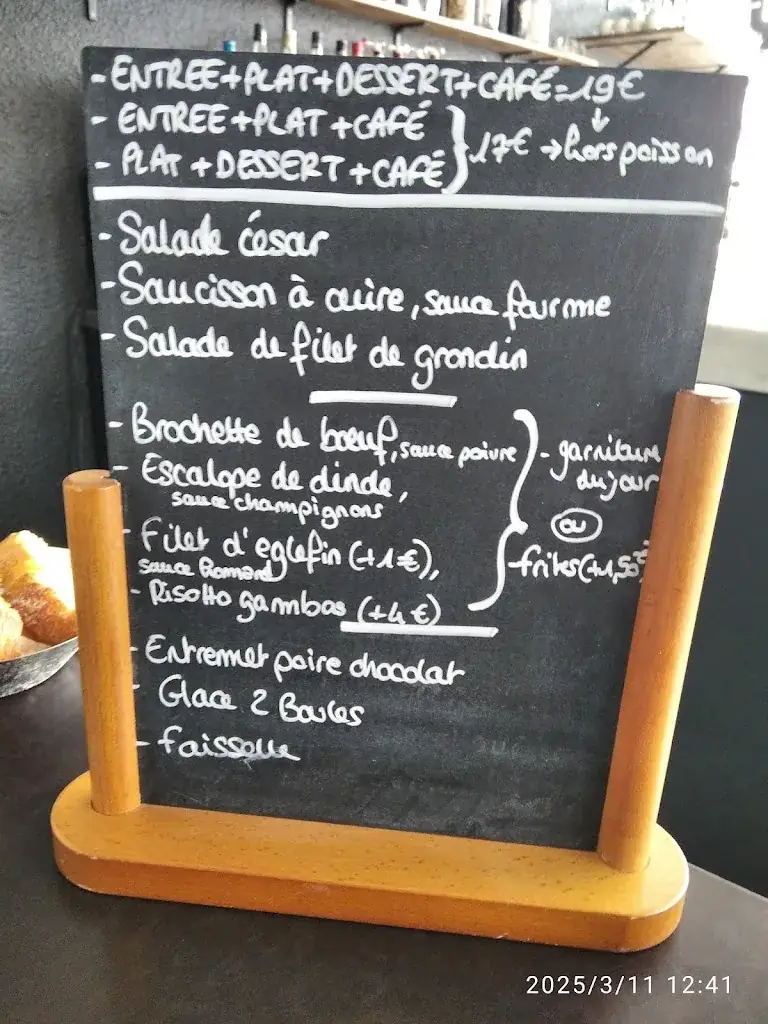 - ENTREE+PLAT+DESSERT+CAFÉ=19€
- ENTREE+PLAT+CAFÉ
- PLAT+DESSERT+CAFÉ
17€ → hors poisson
- Salade césar
- Saucisson à cuire, sauce fourme
- Salade de filet de grondin
- Brochette de bœuf, sauce poivre
- Escalope de dinde,
sauce champignons
- Filet d'eglefin (+1€),
sauce Homard
- Risotto gambas (+4€)
- garniture
du jour
ou
- frites (+1,50€)
- Entremet poire chocolat
- Glace 2 Boules
- faisselle
2025/3/11 12:41